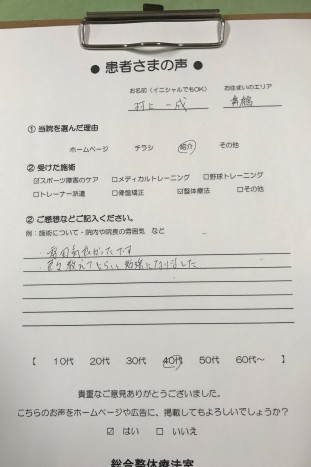 ● 患者さまの声 ●
お名前(イニシャルでもOK) お住まいのエリア
村上 一成
① 当院を選んだ理由
ホームページ チラシ 紹介 その他
② 受けた施術
☑スポーツ障害のケア □メディカルトレーニング □野球トレーニング
□トレーナー派遣 □骨盤矯正 ☑整体療法 □その他
② ご感想などご記入ください。
例:施術について・院内や院長の雰囲気 など
・雰囲気良かったです
・色々教えてもらい勉強になりました
【 10代 20代 30代 40代 50代 60代〜 】
貴重なご意見ありがとうございました。
こちらのお声をホームページや広告に、掲載してもよろしいでしょうか?
☑ はい □ いいえ
総合整体療法室